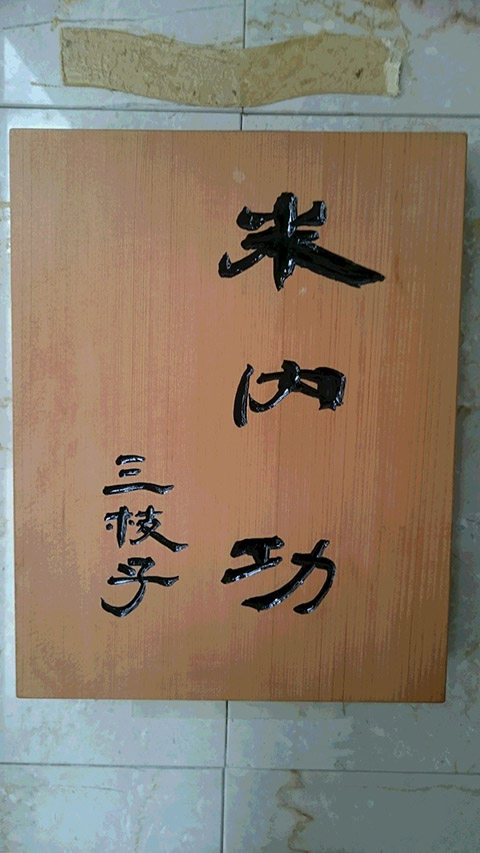 米内功
三枝子